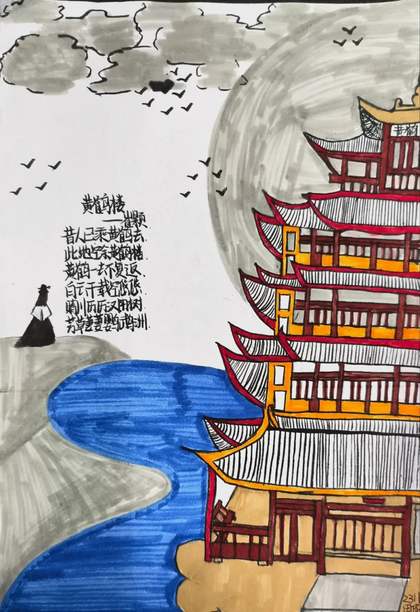 黄鹤楼
——崔颢
昔人已乘黄鹤去
此地空余黄鹤楼
黄鹤一去不复返
白云千载空悠悠
晴川历历汉阳树
芳草萋萋鹦鹉洲
黄鹤
231